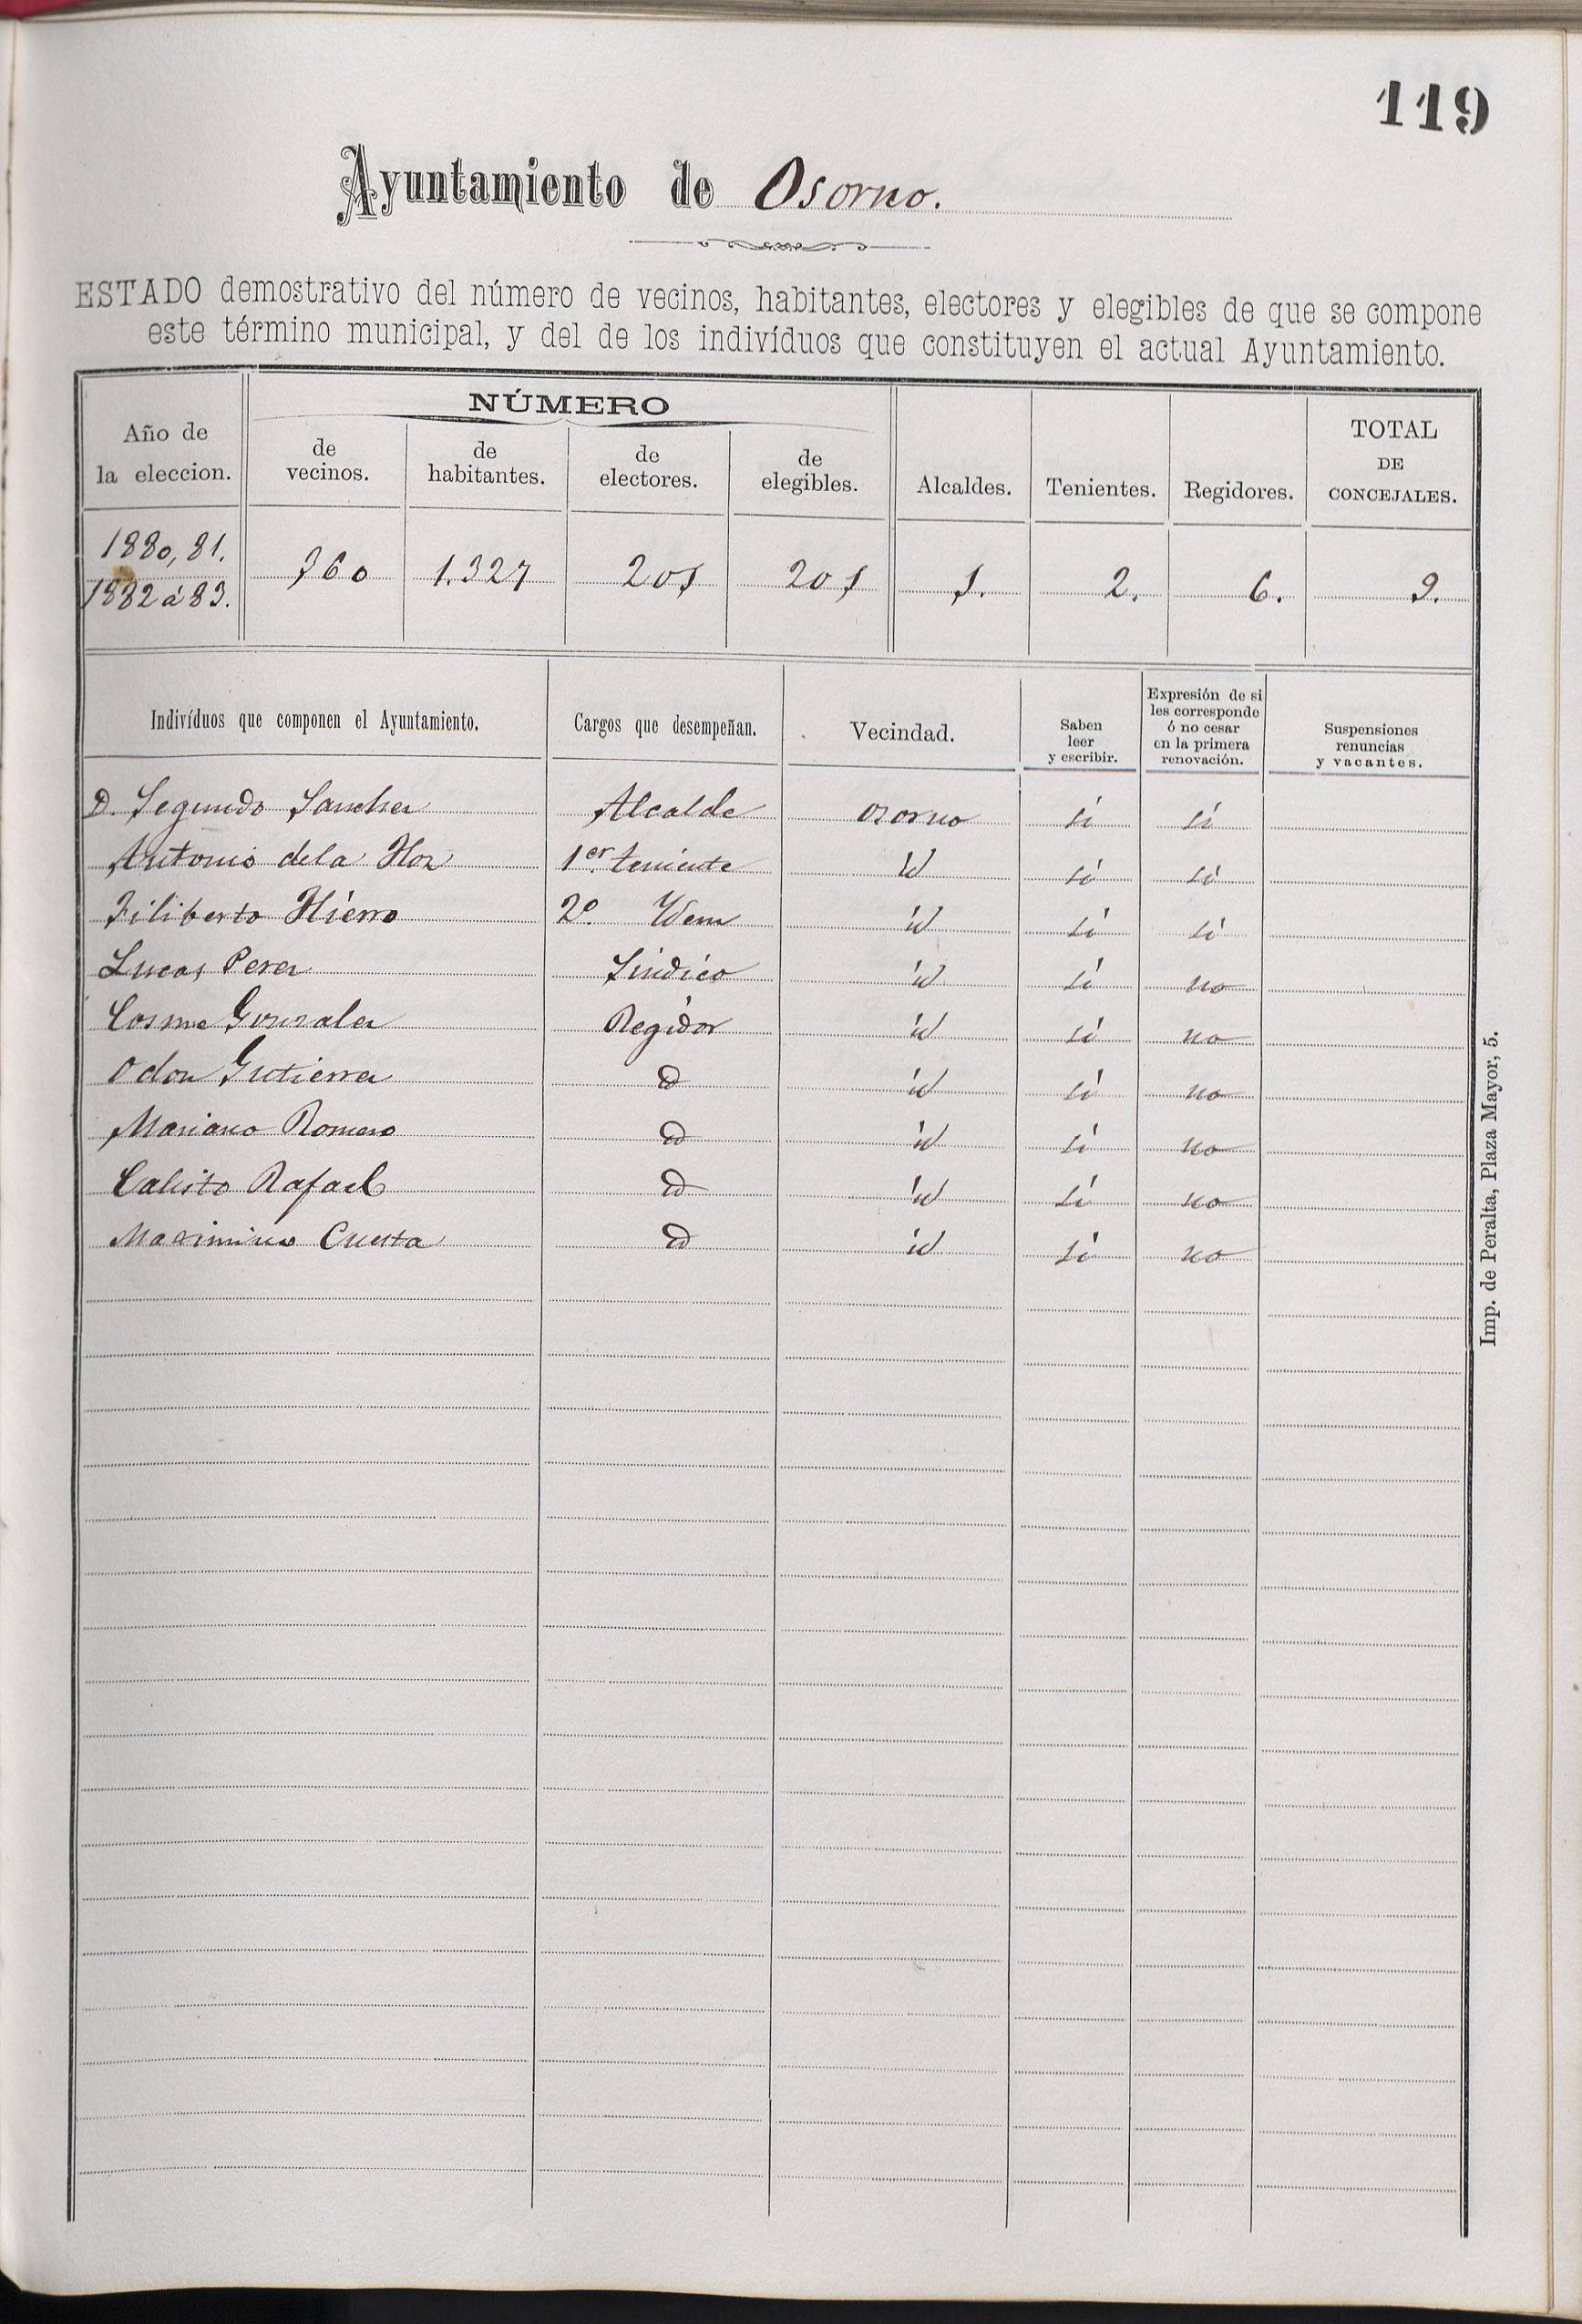 119
Ayuntamiento de Osorno.
ESTADO demostrativo del número de vecinos, habitantes, electores y elegibles de que se compone
este término municipal, y del de los indivíduos que constituyen el actual Ayuntamiento.
NÚMERO
Año de la eleccion. de vecinos. de habitantes. de electores. de elegibles. Alcaldes. Tenientes. Regidores. TOTAL DE CONCEJALES.
1880, 81.
1882 á 83. 360 1.327 201 201 1. 2. 6. 9.
Indivíduos que componen el Ayuntamiento. Cargos que desempeñan. Vecindad. Saben leer y escribir. Expresión de si les corresponde ó no cesar en la primera renovación. Suspensiones renuncias y vacantes.
D. Segundo Sanchez Alcalde Osorno si si
Antonio de la Hoz 1er. teniente id si si
Filiberto Hierro 2º. Idem id si si
Lucas Perez Síndico id si no
Cosme Gonzalez Regidor id si no
Odon Gutierrez id id si no
Mariano Romero id id si no
Calisto Rafael id id si no
Maximino Cuesta id id si no
Imp. de Peralta, Plaza Mayor, 5.